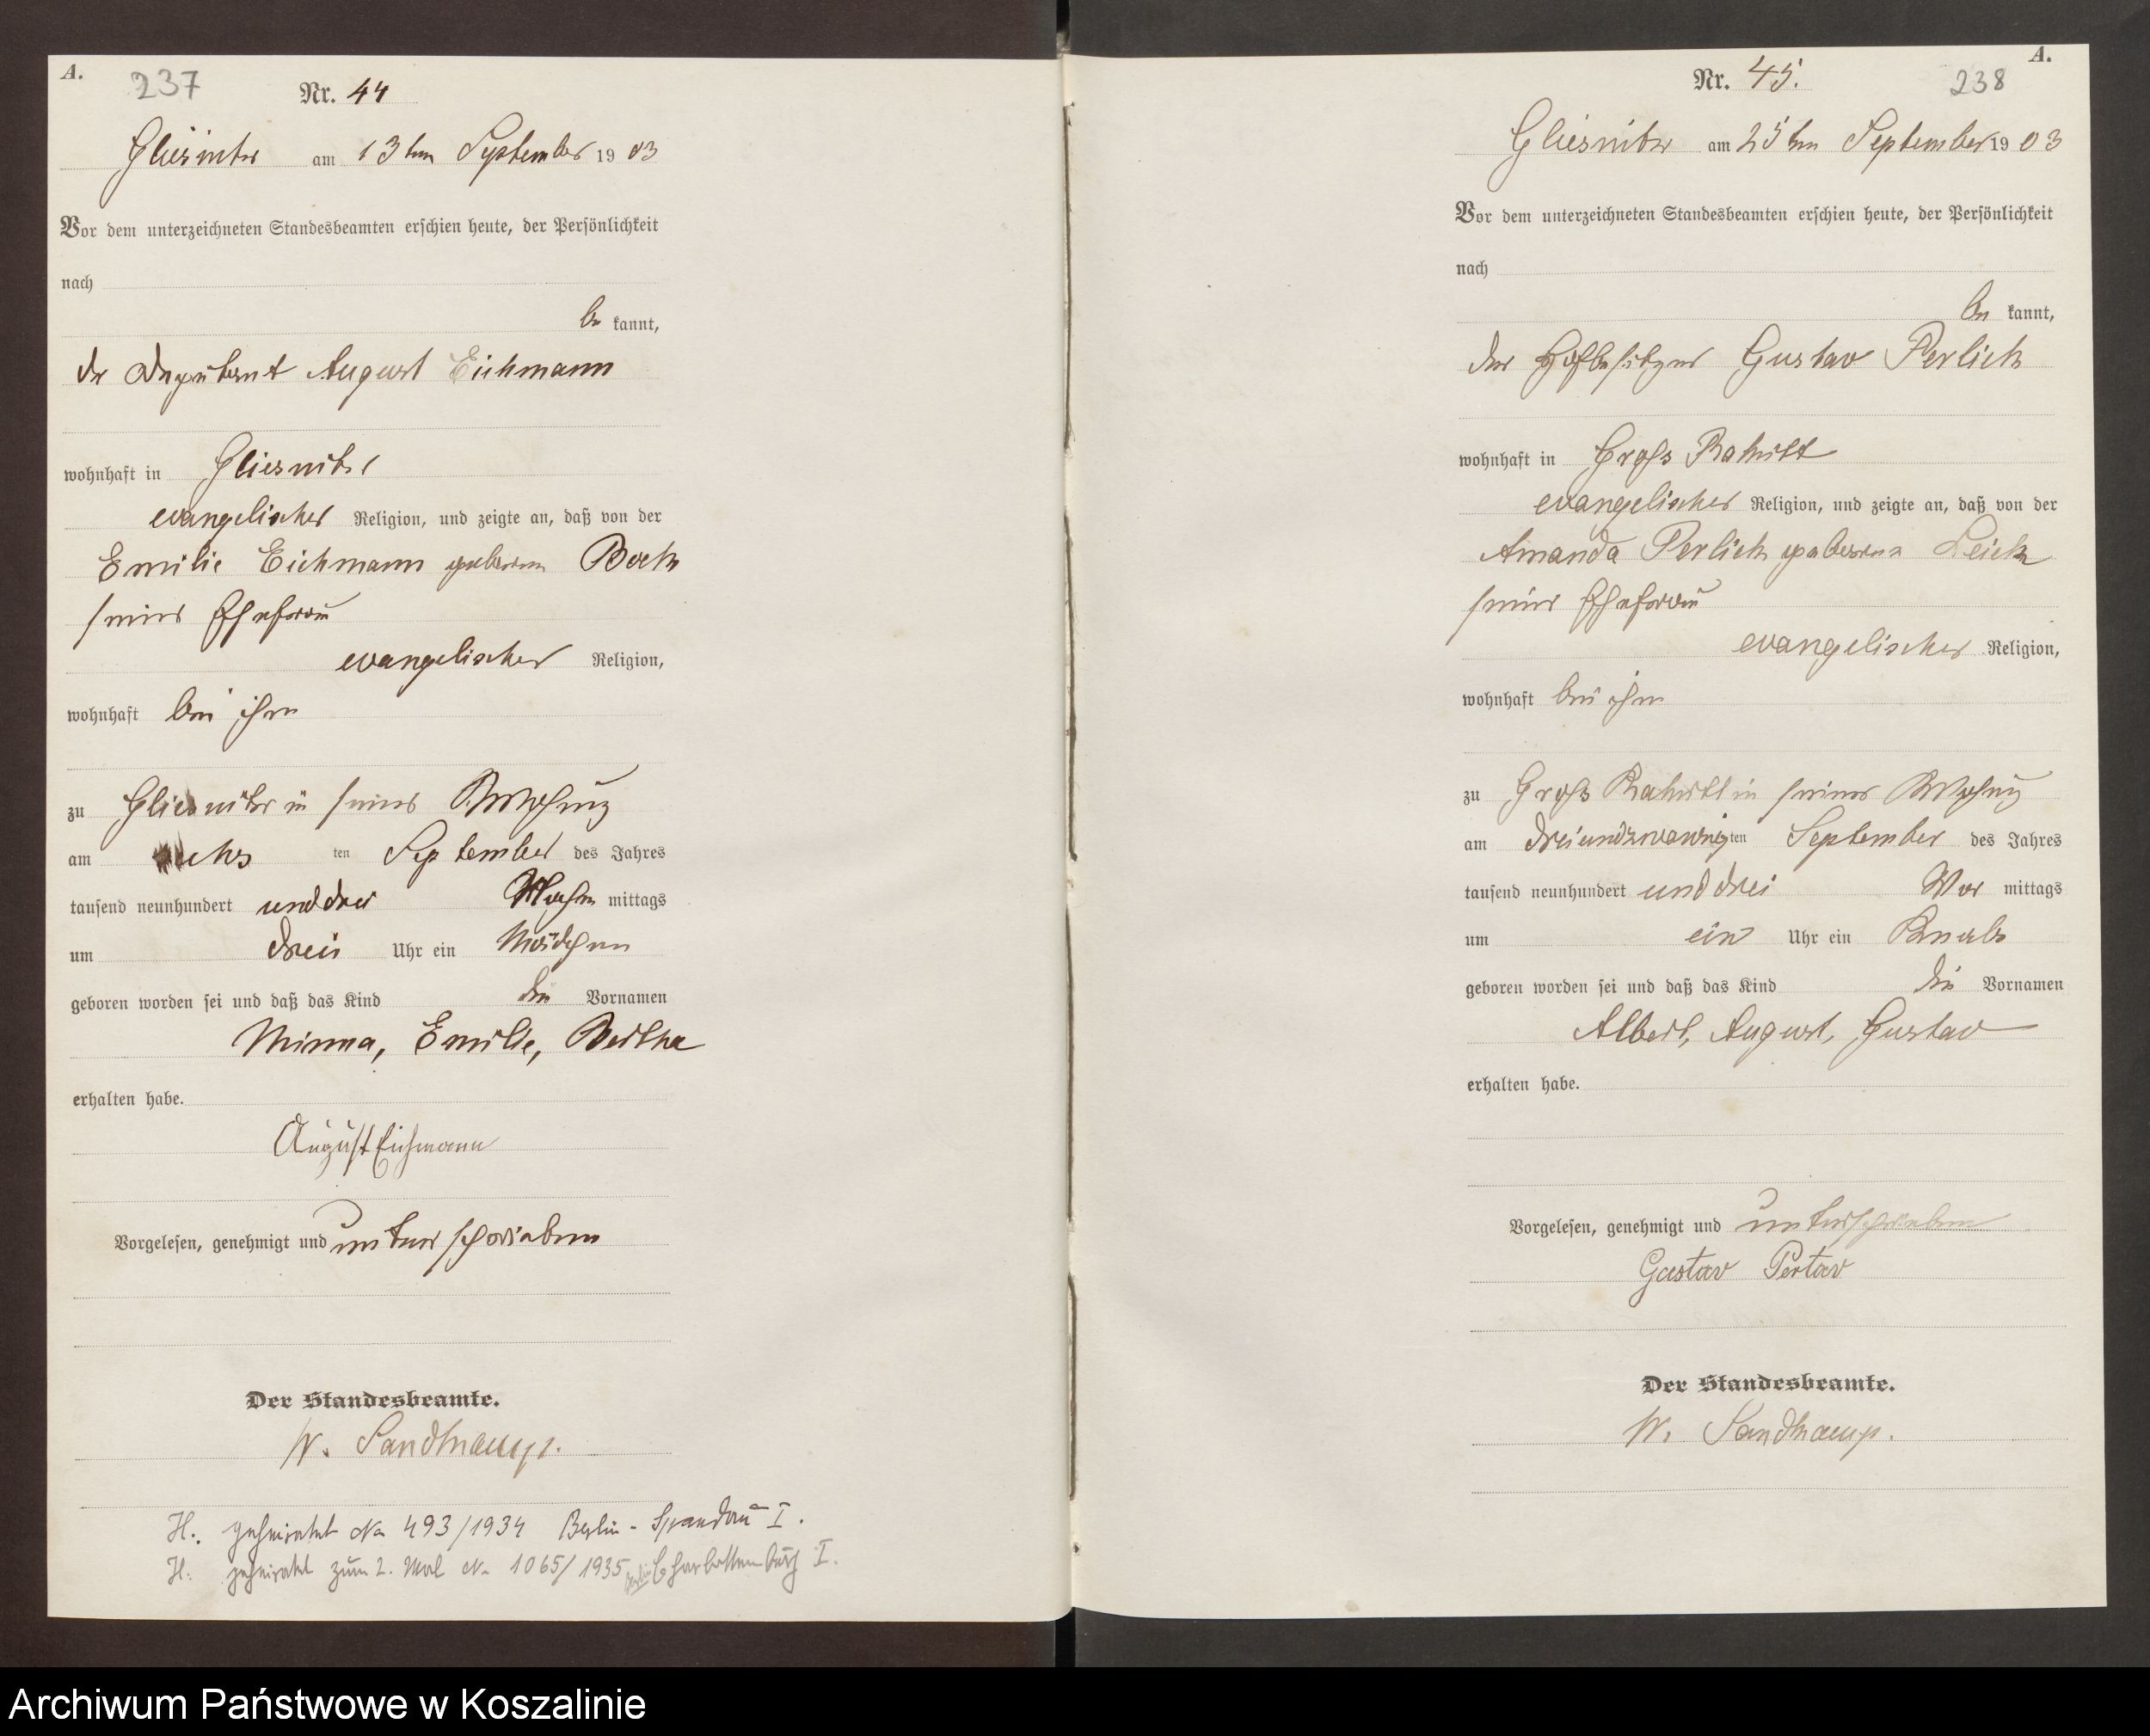 A.
237
Nr. 44
Gliesnitz am 13ten September 1903
Vor dem unterzeichneten Standesbeamten erschien heute, der Persönlichkeit
nach
be kannt,
der Deputant August Eichmann
wohnhaft in Gliesnitz
evangelischer Religion, und zeigte an, daß von der
Emilie Eichmann geborenen Bock
seiner Ehefrau
evangelischer Religion,
wohnhaft bei ihm
zu Gliesnitz in seiner Wohnung
am sechs ten September des Jahres
tausend neunhundert und drei Nach mittags
um drei Uhr ein Mädchen
geboren worden sei und daß das Kind die Vornamen
Minna, Emilie, Bertha
erhalten habe.
August Eichmann
Vorgelesen, genehmigt und unterschrieben
Der Standesbeamte.
W. Sandkamp.
H. geheiratet No 493/1934 Berlin-Spandau I.
H. geheiratet zum 2. Mal No 1065/1935 Berlin Charlottenburg I.
A.
238
Nr. 45.
Gliesnitz am 25ten September 1903
Vor dem unterzeichneten Standesbeamten erschien heute, der Persönlichkeit
nach
be kannt,
der Hofbesitzer Gustav Perlick
wohnhaft in Gross Rakitt
evangelischer Religion, und zeigte an, daß von der
Amanda Perlick geborene Leick
seiner Ehefrau
evangelischer Religion,
wohnhaft bei ihm
zu Gross Rakitt in seiner Wohnung
am dreiundzwanzigten September des Jahres
tausend neunhundert und drei Vor mittags
um ein Uhr ein Knabe
geboren worden sei und daß das Kind die Vornamen
Albert, August, Gustav
erhalten habe.
Vorgelesen, genehmigt und unterschrieben
Gustav
Der Standesbeamte.
W. Sandkamp.
Archiwum Państwowe w Koszalinie